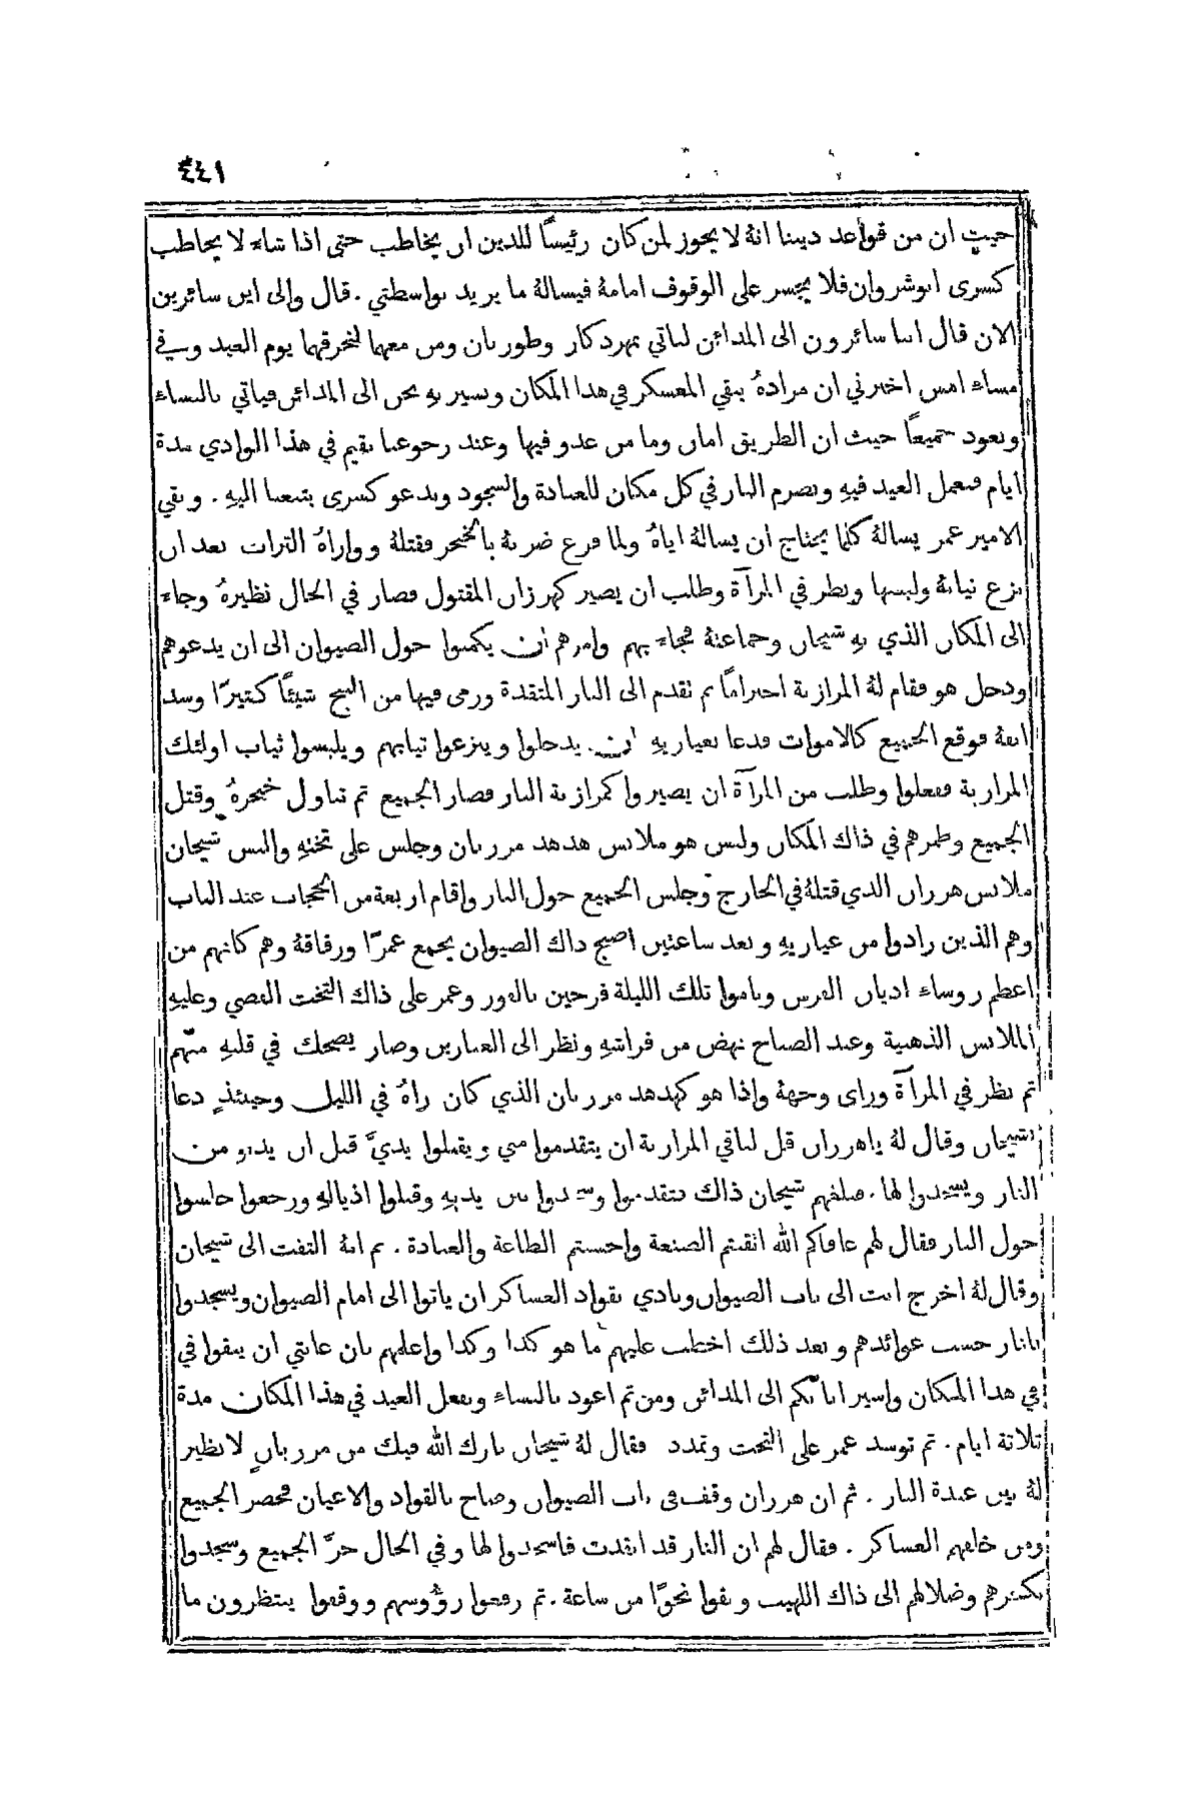 ٤٤١
حيث ان من قواعد ديننا انهُ لا يجوز لمن كان رئيسًا للدين ان يخاطب حتى اذا شاء لا يخاطب
كسرى انوشروان فلا يجسر على الوقوف امامهُ فيسالهُ ما يريد بواسطتي . قال والى اين سائرين
الان قال اننا سائرون الى المدائن لناتي بمهردكار وطوربان ومن معهما لنحرقهما يوم العيد وفي
مساء امس اخبرني ان مرادهُ يبقي المعسكر في هذا المكان ونسير بهِ نحن الى المدائن فياتي بالنساء
ونعود جميعًا حيث ان الطريق امان وما من عدو فيها وعند رجوعنا نقيم في هذا الوادي مدة
ايام فنعمل العيد فيهِ ونضرم النار في كل مكان للعبادة والسجود وندعو كسرى يتبعنا اليهِ . وبقي
الامير عمر يسالهُ كلما يحتاج ان يسالهُ اياهُ ولما فرغ ضربهُ بالخنجر فقتلهُ وواراهُ التراب بعد ان
نزع ثيابهُ ولبسها ونظر في المرآة وطلب ان يصير كهرزان المقتول فصار في الحال نظيرهُ وجاء
الى المكان الذي بهِ شيحان وجماعتهُ فجاء بهم وامرهم ان يكمنوا حول الصيوان الى ان يدعوهم
ودخل هو فقام لهُ المرازبة احترامًا ثم تقدم الى النار المتقدة ورمى فيها من البنج شيئًا كثيرًا وسد
انفهُ فوقع الجميع كالاموات فدعا بعياريهِ ان يدخلوا وينزعوا ثيابهم ويلبسوا ثياب اولئك
المرازبة ففعلوا وطلب من المرآة ان يصيروا كمرازبة النار فصار الجميع ثم تناول خنجرهُ وقتل
الجميع وطمرهم في ذاك المكان ولبس هو ملابس هدهد مرزبان وجلس على تختهِ والبس شيحان
ملابس هرزان الذي قتلهُ في الخارج وجلس الجميع حول النار واقام اربعة من الحجاب عند الباب
وهم الذين زادوا من عياريهِ وبعد ساعتين اصبح ذاك الصيوان يجمع عمرًا ورفاقهُ وهم كانهم من
اعظم روساء اديان الفرس وباموا تلك الليلة فرحين بالفوز وعمر على ذاك التخت الفضي وعليهِ
الملابس الذهبية وعند الصباح نهض من فراشهِ ونظر الى العيارين وصار يضحك في قلبهِ منهم
ثم نظر في المرآة وراى وجههُ واذا هو كهدهد مرزبان الذي كان راهُ في الليل وحينئذٍ دعا
بشيحان وقال لهُ ياهرزان قل لباقي المرازبة ان يتقدموا مني ويقبلوا يديَّ قبل ان يدنو من
النار ويسجدوا لها . فبلغهم شيحان ذاك فتقدموا وسجدوا بين يديهِ وقبلوا اذيالهِ ورجعوا جلسوا
حول النار فقال لهم عافاكم الله اتقنتم الصنعة واحسنتم الطاعة والعبادة . ثم انهُ التفت الى شيحان
وقال لهُ اخرج انت الى باب الصيوان ونادي بقواد العساكر ان ياتوا الى امام الصيوان ويسجدوا
بانار حسب عوائدهم وبعد ذلك اخطب عليهم بما هو كذا وكذا واعلمهم بان غايتي ان يبقوا في
في هذا المكان واسير انا بكم الى المدائن ومن ثم اعود بالنساء ونفعل العيد في هذا المكان مدة
ثلاثة ايام . ثم توسد عمر على التخت وتمدد فقال لهُ شيحان بارك الله فيك من مرزبانٍ لا نظير
لهُ بين عبدة النار . ثم ان هرزان وقف في باب الصيوان وصاح بالقواد والاعيان فحضر الجميع
ومن خلفهم العساكر . فقال لهم ان النار قد اتقدت فاسجدوا لها وفي الحال خرَّ الجميع وسجدوا
بكفرهم وضلالهم الى ذاك اللهيب وبقوا نحوًا من ساعة . ثم رفعوا رؤوسهم ووقفوا ينتظرون ما